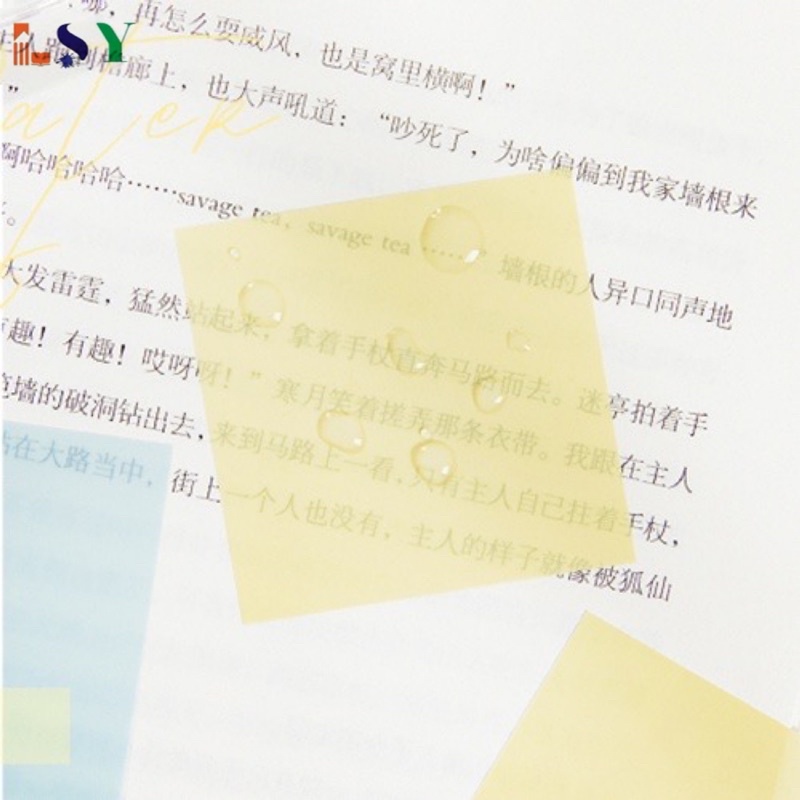 LSY
哪，再怎么耍威风，也是窝里横啊！”
主人跑到檐廊上，也大声吼道：“吵死了，为啥偏偏到我家墙根来
”
啊哈哈哈哈……savage tea，savage tea……”墙根的人异口同声地
。
大发雷霆，猛然站起来，拿着手杖直奔马路而去。迷亭拍着手
有趣！有趣！哎呀呀！”寒月笑着搓弄那条衣带。我跟在主人
墙的破洞钻出去，来到马路上一看，只有主人自己拄着手杖，
站在大路当中，街上一个人也没有，主人的样子就像被狐仙